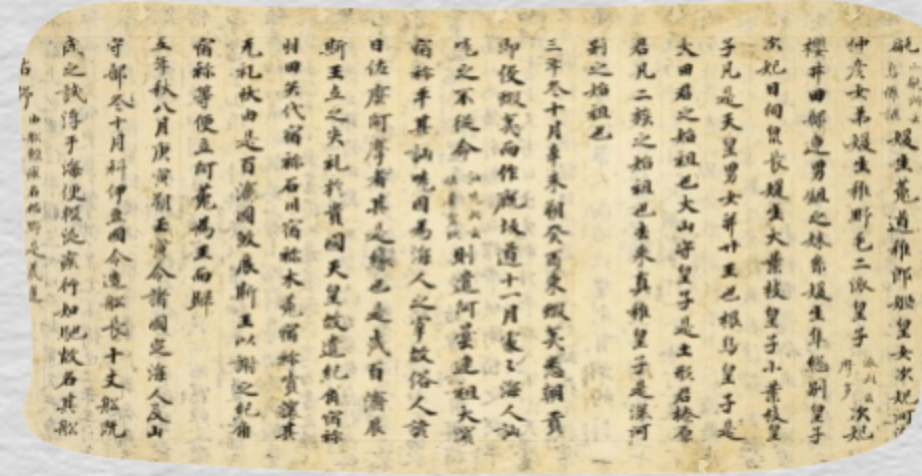 媛生菟道稚郎姬皇女次妃河派
仲彦女弟媛生稚野毛二派皇子 派此云摩多 次妃
櫻井田部連男鉏之妹糸媛生隼總別皇子
次妃日向泉長媛生大葉枝皇子小葉枝皇
子凡是天皇男女并廿王也根鳥皇子是
大田君之始祖也大山守皇子是土形君榛原
君凡二族之始祖也去来真稚皇子是深河
別之始祖也
三年冬十月辛未朔癸酉東蝦夷悉朝貢
即役蝦夷而作厩坂道十一月處々海人訕
哤之不従命 則遣阿曇連祖大濱
宿祢平其訕哤因為海人之宰故俗人諺
曰佐麼阿摩者其是縁也是歳百濟辰
斯王立之失礼於貴國天皇故遣紀角宿祢
羽田矢代宿祢石川宿祢木菟宿祢嘖讓其
无礼状由是百濟國殺辰斯王以謝之紀角
宿祢等便立阿花為王而歸
五年秋八月庚寅朔壬寅令諸國定海人及山
守部冬十月科伊豆國令造船長十丈船既
成之試浮于海便輕泛疾行如馳故名其船
枯野 由船輕疾名枯野是義違